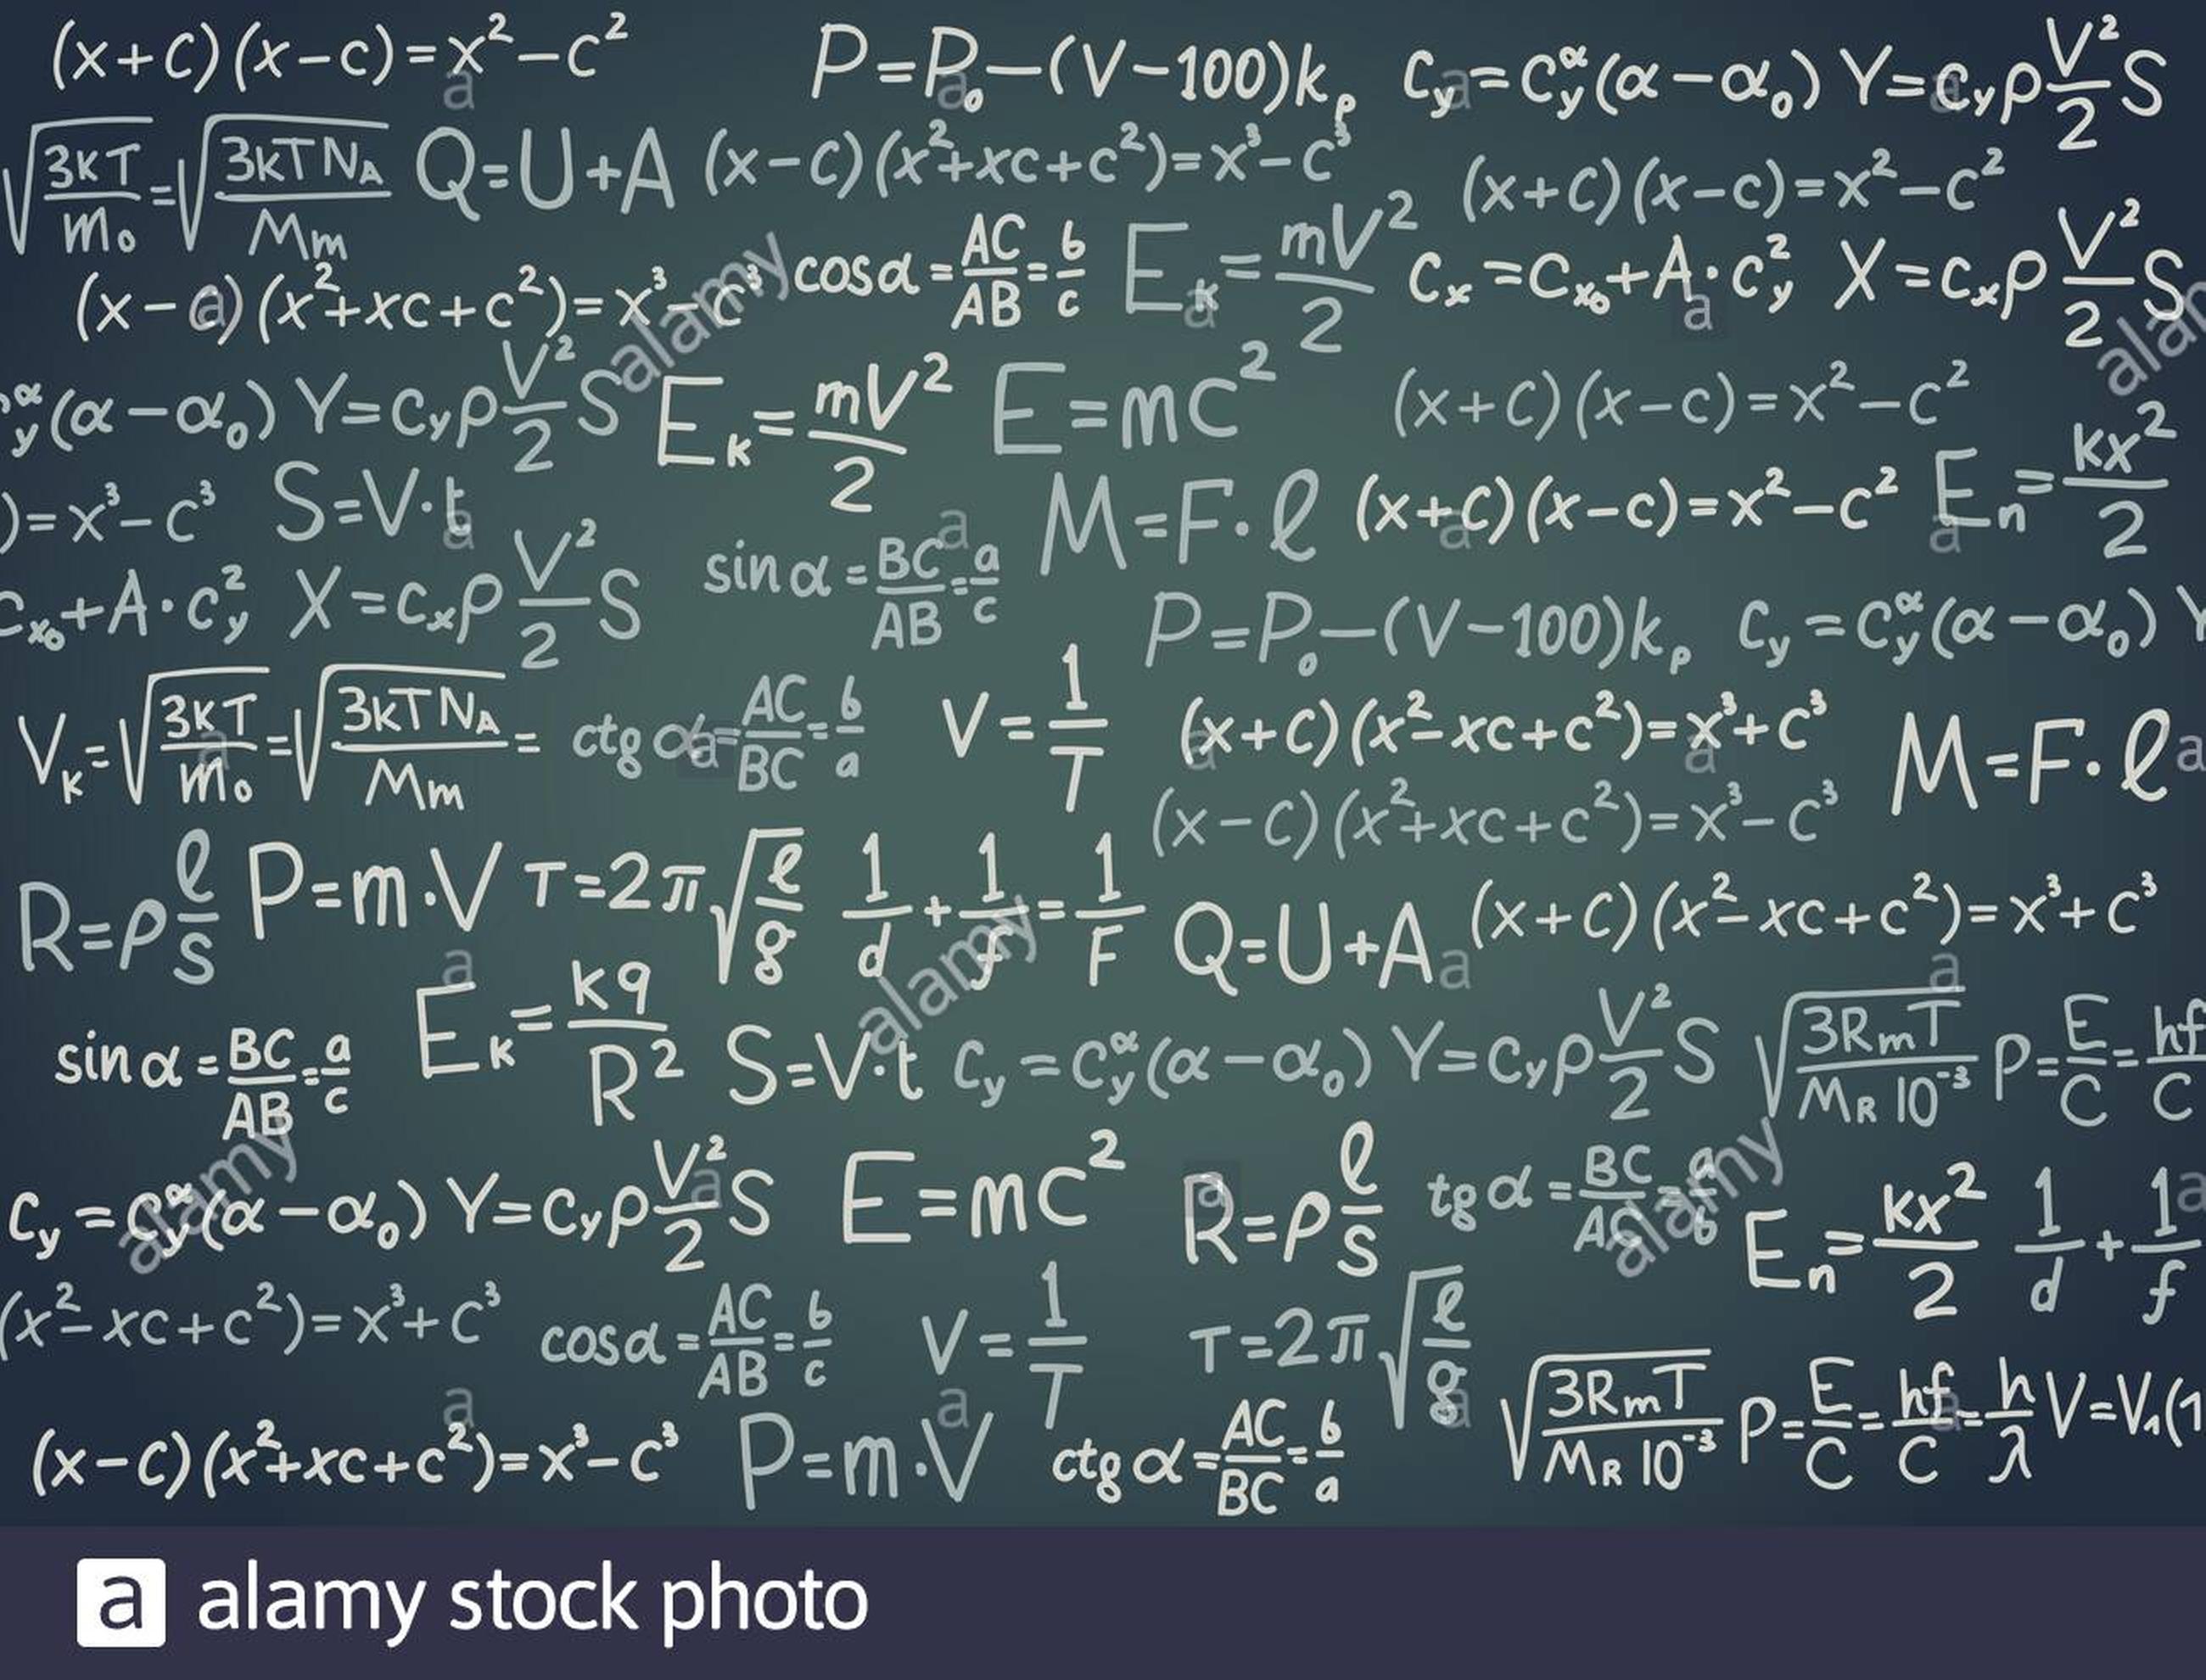 (x+c)(x-c)=x²-c² P=P₀-(V-100)kₚ Cy=Cyᵅ(α-α₀) Y=cyρV²/2 S
√(3kT/m₀)=√(3kTN_A/Mm) Q=U+A (x-c)(x²+xc+c²)=x³-c³ (x+c)(x-c)=x²-c²
(x-c)(x²+xc+c²)=x³-c³ cosα=AC/AB=b/c E_k=mV²/2 Cx=Cx₀+A·cy² X=cxρV²/2 S
yᵅ(α-α₀) Y=cyρV²/2 S E_k=mV²/2 E=mc² (x+c)(x-c)=x²-c²
)=x³-c³ S=V·t M=F·ℓ (x+c)(x-c)=x²-c² En=kx²/2
Cx₀+A·cy² X=cxρV²/2 S sinα=BC/AB=a/c P=P₀-(V-100)kₚ Cy=Cyᵅ(α-α₀) Y
V_K=√(3kT/m₀)=√(3kTN_A/Mm)= ctgα=AC/BC=b/a V=1/T (x+c)(x²-xc+c²)=x³+c³ M=F·ℓ
(x-c)(x²+xc+c²)=x³-c³
R=ρℓ/s P=m·V T=2π√(ℓ/g) 1/d+1/f=1/F Q=U+A (x+c)(x²-xc+c²)=x³+c³
sinα=BC/AB=a/c E_K=kq/R² S=V·t Cy=Cyᵅ(α-α₀) Y=cyρV²/2 S √(3RmT/M_R 10⁻³) P=E/C=hf/C
Cy=Cyᵅ(α-α₀) Y=cyρV²/2 S E=mc² R=ρℓ/s tgα=BC/AC=a/b En=kx²/2 1/d+1/f
(x²-xc+c²)=x³+c³ cosα=AC/AB=b/c V=1/T T=2π√(ℓ/g)
(x-c)(x²+xc+c²)=x³-c³ P=m·V ctgα=AC/BC=b/a √(3RmT/M_R 10⁻³) P=E/C=hf/C=h/λ V=V₁(1
a alamy stock photo